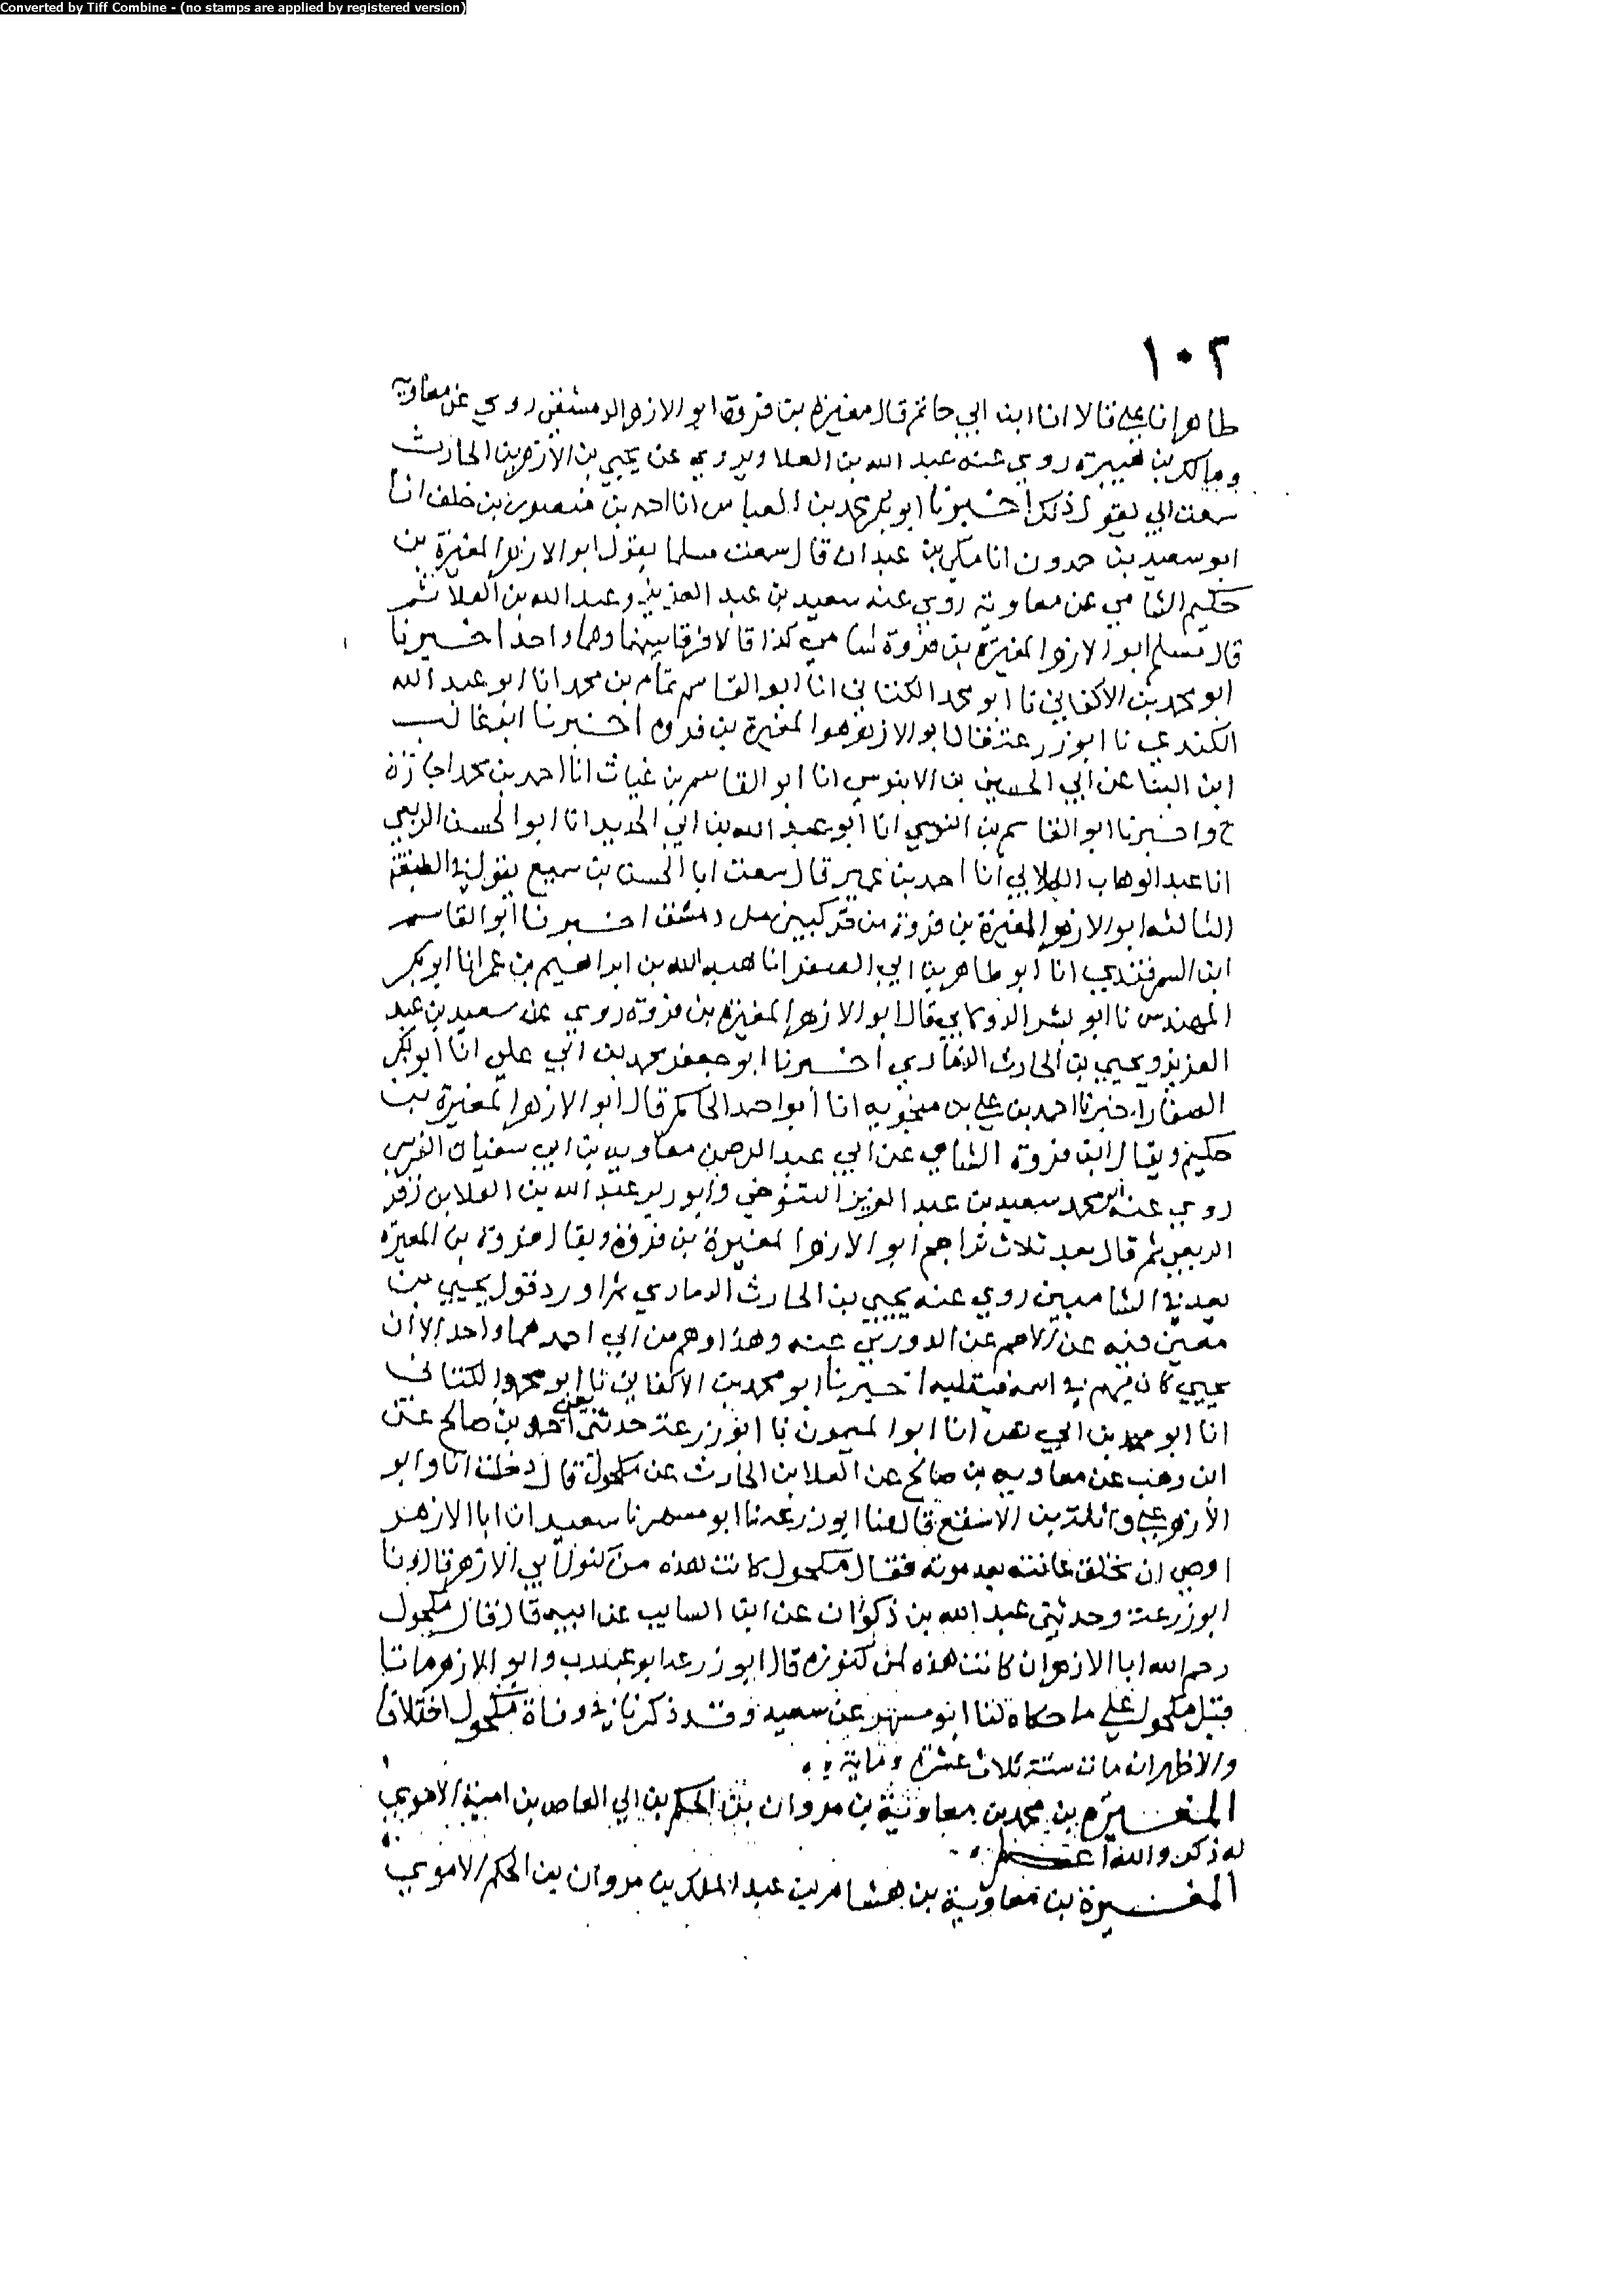 Converted by Tiff Combine - (no stamps are applied by registered version)
١٠٢
طاهر انا علي قالا انا ابن ابي حاتم قال مغيرة بن فروة ابو الازهر الدمشقي روي عن معاوية
ومالك بن هبيرة روي عنه عبد الله بن العلا ويروي عن يحيي بن الازهر بن الحارث
سمعت ابي يقول ذلك اخبرنا ابو بكر محمد بن العباس انا احمد بن منصور بن خلف انا
ابو سعيد بن حمدون انا مكي بن عبدان قال سمعت مسلما يقول ابو الازهر المغيرة بن
حكيم الشامي عن معاوية روي عنه سعيد بن عبد العزيز وعبد الله بن العلا ثم
قال مسلم ابو الازهر المغيرة بن فروة شامي كذا قالا فرقا بينهما وهما واحد اخبرنا
ابو محمد بن الاكفاني نا ابو محمد الكتاني انا ابو القاسم تمام بن محمد انا ابو عبد الله
الكندي نا ابو زرعة قال ابو الازهر هو المغيرة بن فروه اخبرنا ابو غالب
ابن البنا عن ابي الحسين بن الابنوسي انا ابو القاسم بن غياث انا احمد بن محمد اجازة
ح واخبرنا ابو القاسم بن السوسي انا ابو عبد الله بن ابي الحديد انا ابو الحسن الربعي
انا عبد الوهاب الكلابي انا احمد بن عمير قال سمعت ابا الحسن بن سميع يقول في الطبقة
الثالثه ابو الازهر المغيرة بن فروة من دمشق اخبرنا ابو القاسم
ابن السمرقندي انا ابو طاهر بن ابي الصقر انا هبه الله بن ابراهيم بن عمر انا ابو بكر
المهندس نا ابو بشر الدولابي قال ابو الازهر المغيرة بن فروة روي عن سعيد بن عبد
العزيز ويحيي بن الحارث الذماري اخبرنا ابو جعفر محمد بن ابي علي انا ابو بكر
الصفار اخبرنا احمد بن علي بن منجويه انا ابو احمد الحاكم قال ابو الازهر المغيرة بن
حكيم ويقال ابن فروة الشامي عن ابي عبد الرحمن معاويه بن ابي سفيان القرشي
روي عنه ابو محمد سعيد بن عبد العزيز التنوخي وابو زبر عبد الله بن العلا بن زبر
الربعي ثم قال بعد ثلاث تراجم ابو الازهر المغيرة بن فروة ويقال فروة بن المغيرة
يعد في الشاميين روي عنه يحيي بن الحارث الذماري ثم اورد قول يحيي بن
معين فيه عن الاصم عن الدوري عنه وهذا وهم من ابي احمد هما واحد الا ان
يحيي كان يهم في اسمه فيقلبه اخبرنا ابو محمد بن الاكفاني نا ابو محمد الكتاني
انا ابو محمد بن ابي نصر انا ابو الميمون نا ابو زرعة حدثني يعني احمد بن صالح عن
ابن وهب عن معاويه بن صالح عن العلا بن الحارث عن مكحول قال دخلت انا وابو
الازهر علي واثلة بن الاسقع قال ونا ابو زرعه نا ابو مسهر نا سعيد ان ابا الازهر
اوصي ان تحلق عانته بعد موته فقال مكحول كانت هذه من كنوز ابي الازهر قال ونا
ابو زرعة وحدثني عبد الله بن ذكوان عن ابن السايب عن ابيه قال قال مكحول
رحم الله ابا الازهر ان كانت هذه لمن كنوزه قال ابو زرعه ابو عبد رب وابو الازهر ماتا
قبل مكحول علي ما حكاه لنا ابو مسهر عن سعيد وقد ذكرنا في وفاة مكحول اختلافا
والاظهر انه مات سنة ثلاث عشرة وماية
المغيره بن محمد بن معاوية بن مروان بن الحكم بن ابي العاص بن امية الاموي
له ذكر والله اعلم
المغيرة بن معاوية بن هشام بن عبد الملك بن مروان بن الحكم الاموي